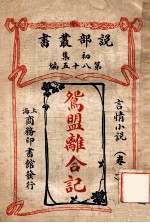 說部叢書
初集
第八十五編
言情小說
鴛盟離合記
上海商務印書館發行